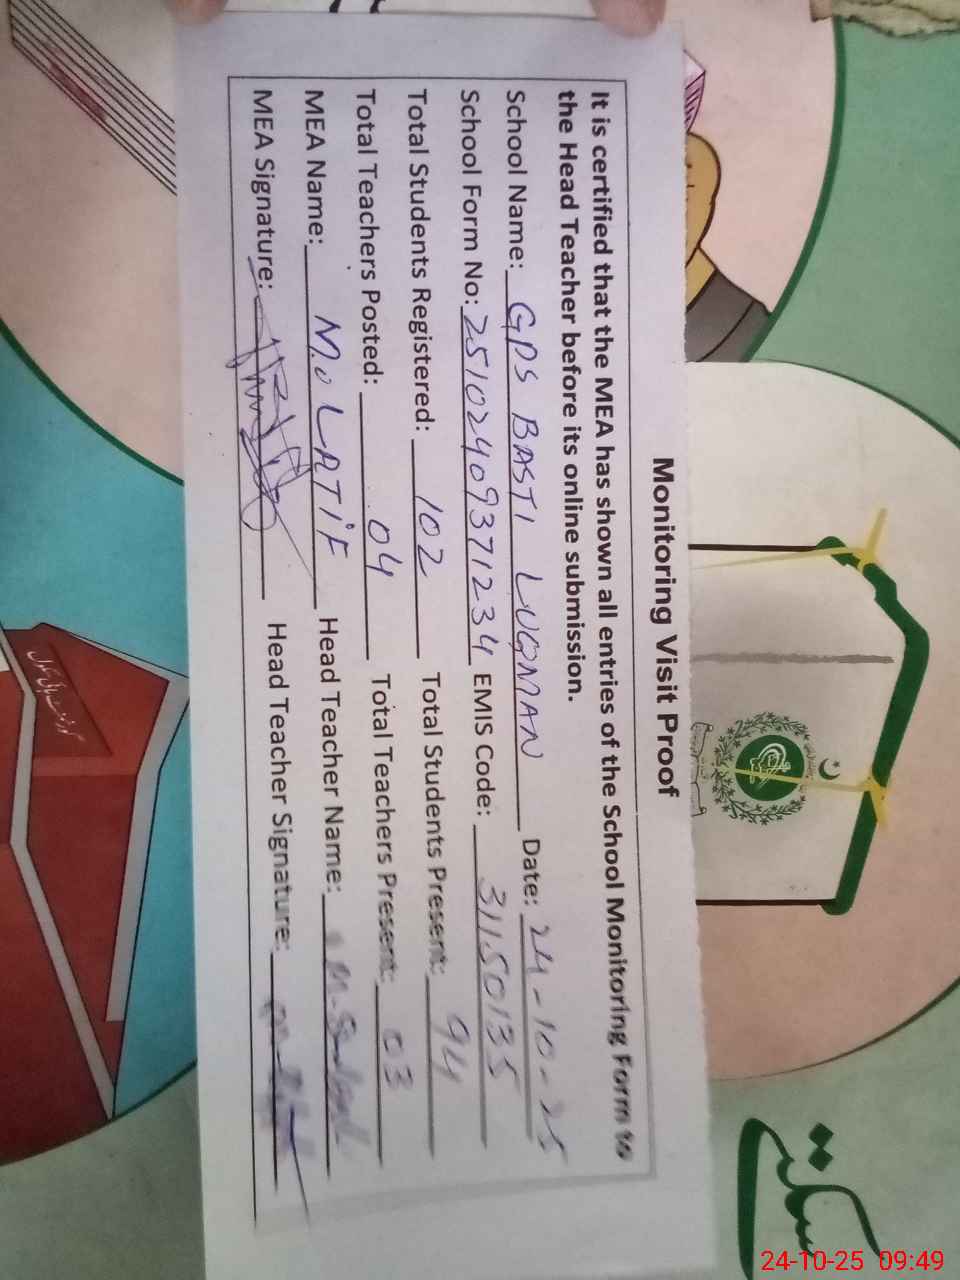 Monitoring Visit Proof
It is certified that the MEA has shown all entries of the School Monitoring Form to
the Head Teacher before its online submission.
School Name: GPS BASTI LUQMAN Date: 24-10-25
School Form No: 25102409371234 EMIS Code: 31150135
Total Students Registered: 102 Total Students Present: 94
Total Teachers Posted: 04 Total Teachers Present: 03
MEA Name: M. LATIF Head Teacher Name:
MEA Signature: Head Teacher Signature:
24-10-25 09:49